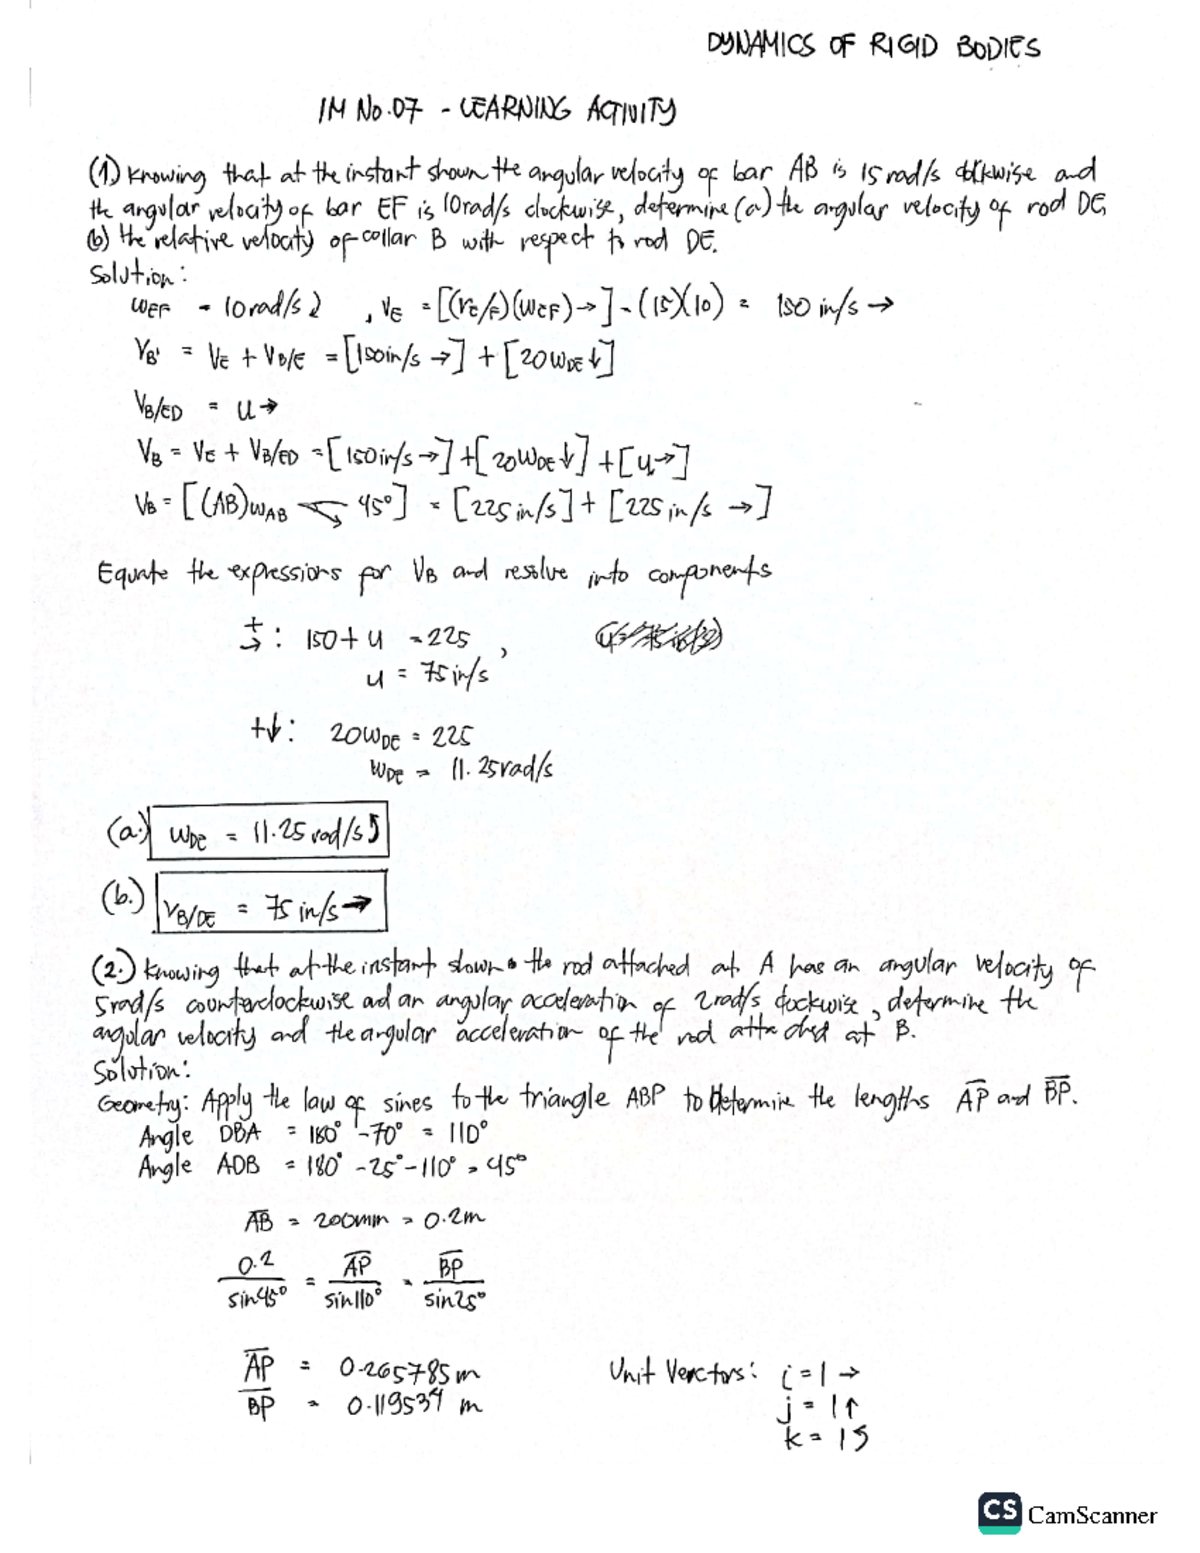 DYNAMICS OF RIGID BODIES
IM No.07 - LEARNING ACTIVITY
(1.) Knowing that at the instant shown the angular velocity of bar AB is 15 rad/s clockwise and
the angular velocity of bar EF is 10 rad/s clockwise, determine (a) the angular velocity of rod DE,
(b) the relative velocity of collar B with respect to rod DE.
Solution:
ωEF = 10 rad/s ↻ , VE = [(rE/F)(ωEF) →] = (15)(10) = 150 in/s →
VB' = VE + VB/E = [150 in/s →] + [20ωDE ↓]
VB/ED = u →
VB = VE + VB/ED = [150 in/s →] + [20ωDE ↓] + [u →]
VB = [(AB)ωAB 45°] = [225 in/s] + [225 in/s →]
Equate the expressions for VB and resolve into components
+→ : 150 + u = 225 ,
u = 75 in/s
+↓ : 20ωDE = 225
ωDE = 11.25 rad/s
(a.) ωDE = 11.25 rad/s ↺
(b.) VB/DE = 75 in/s →
(2.) Knowing that at the instant shown the rod attached at A has an angular velocity of
5 rad/s counterclockwise ad an angular acceleration of 2 rad/s clockwise, determine the
angular velocity and the angular acceleration of the rod attached at B.
Solution:
Geometry: Apply the law of sines to the triangle ABP to determine the lengths A̅P̅ and B̅P̅.
Angle DBA = 180° - 70° = 110°
Angle ADB = 180° - 25° - 110° = 45°
A̅B̅ = 200mm = 0.2m
0.2/sin45° = A̅P̅/sin110° = B̅P̅/sin25°
A̅P̅ = 0.265785 m
B̅P̅ = 0.119534 m
Unit Verctors: i = 1 →
j = 1 ↑
k = 1 ↺
CS CamScanner